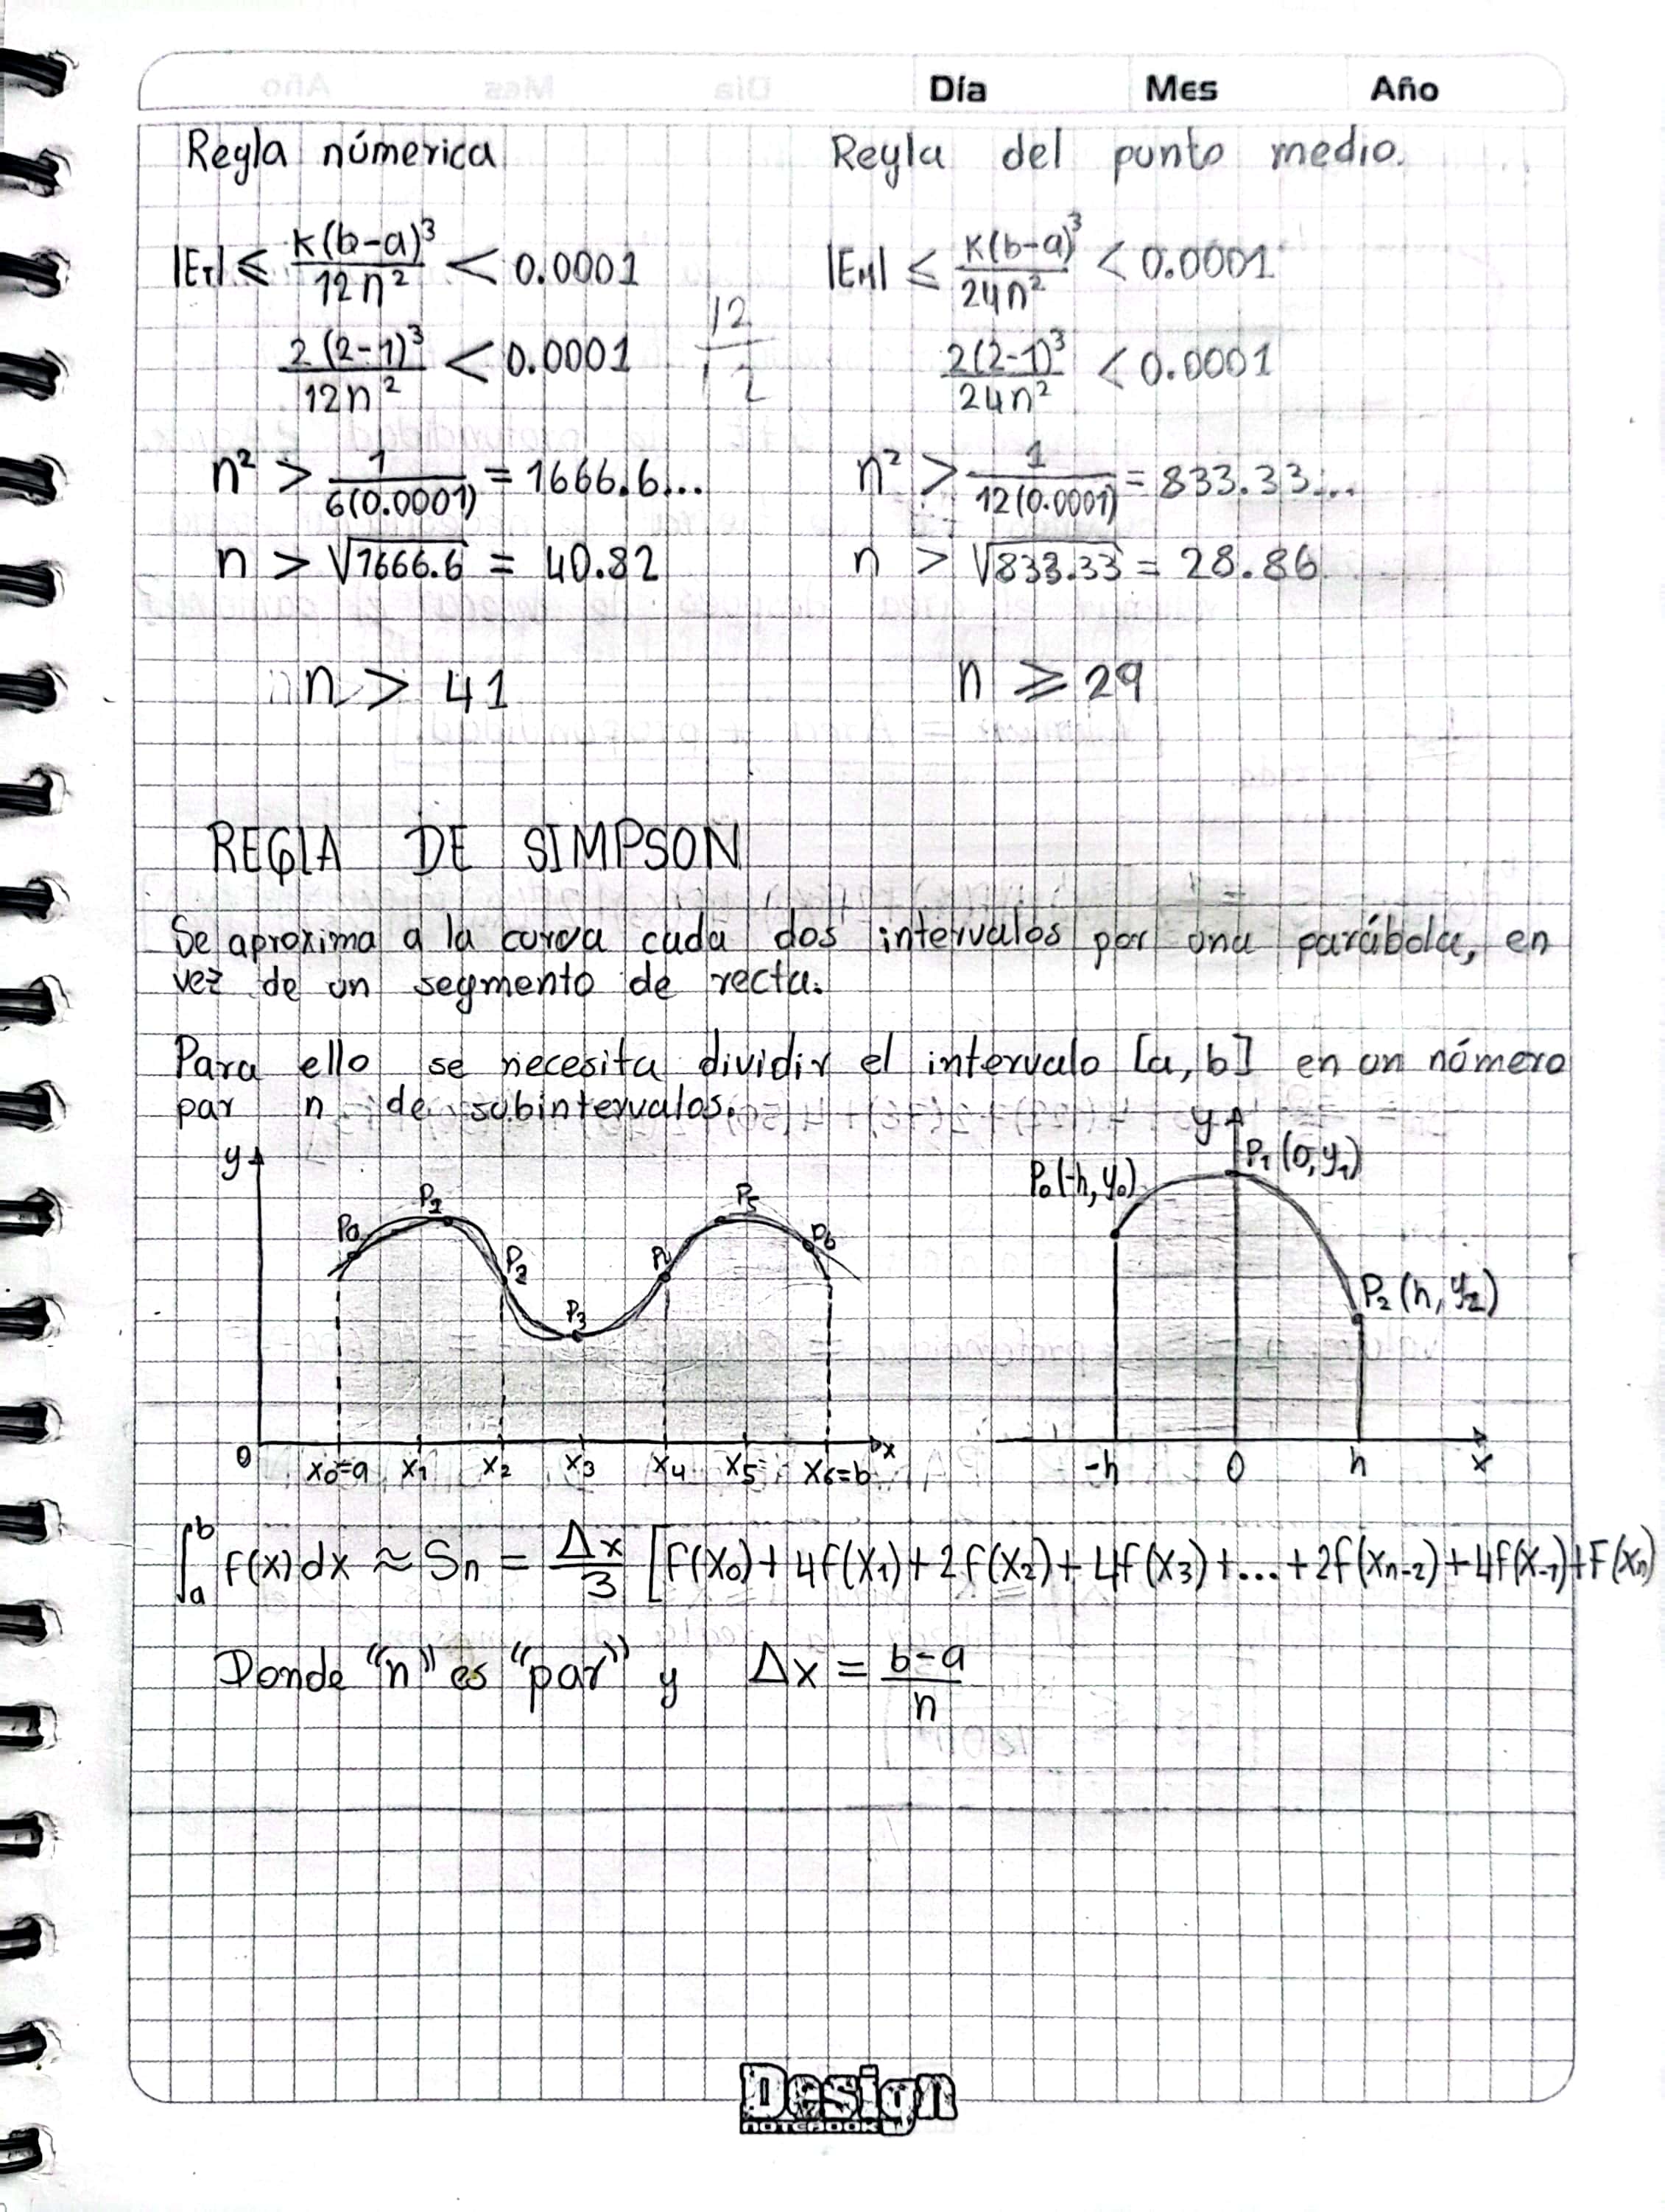 Día Mes Año
Regla númerica
|E_T| ≤ K(b-a)³/12n² < 0.0001
2(2-1)³/12n² < 0.0001
n² > 1/6(0.0001) = 1666.6...
n > √1666.6 = 40.82
n > 41
12
12
Reyla del punto medio.
|E_M| ≤ K(b-a)³/24n² < 0.0001
2(2-1)³/24n² < 0.0001
n² > 1/12(0.0001) = 833.33...
n > √833.33 = 28.86
n ≥ 29
REGLA DE SIMPSON
Se aproxima a la curva cada dos intervalos por una parábola, en
vez de un segmento de recta.
Para ello se necesita dividir el intervalo [a, b] en un número
par n de subintervalos.
y
P₀ P₁ P₂ P₃ P₄ P₅ P₆
0 x₀=a x₁ x₂ x₃ x₄ x₅ x₆=b x
y
P₀(-h, y₀) P₁(0, y₁)
P₂(h, y₂)
-h 0 h x
∫ₐᵇ f(x) dx ≈ Sn = Δx/3 [F(x₀) + 4f(x₁) + 2f(x₂) + 4f(x₃) + ... + 2f(xn-2) + 4f(x-1) + F(xn)
Donde "n" es "par" y Δx = b-a/n
Design
NOTEBOOK